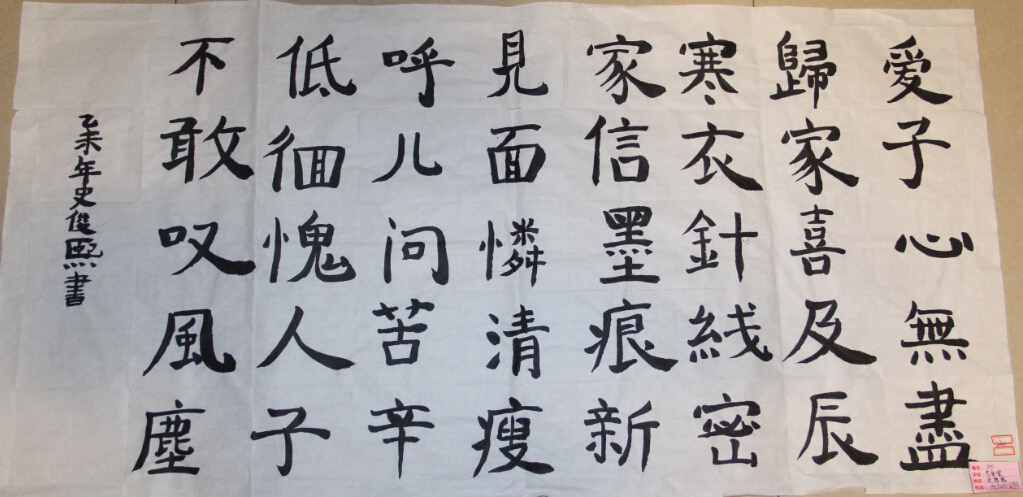 愛子心無盡
歸家喜及辰
寒衣針綫密
家信墨痕新
見面憐清瘦
呼儿问苦辛
低徊愧人子
不敢叹風塵
乙未年史俊熙書